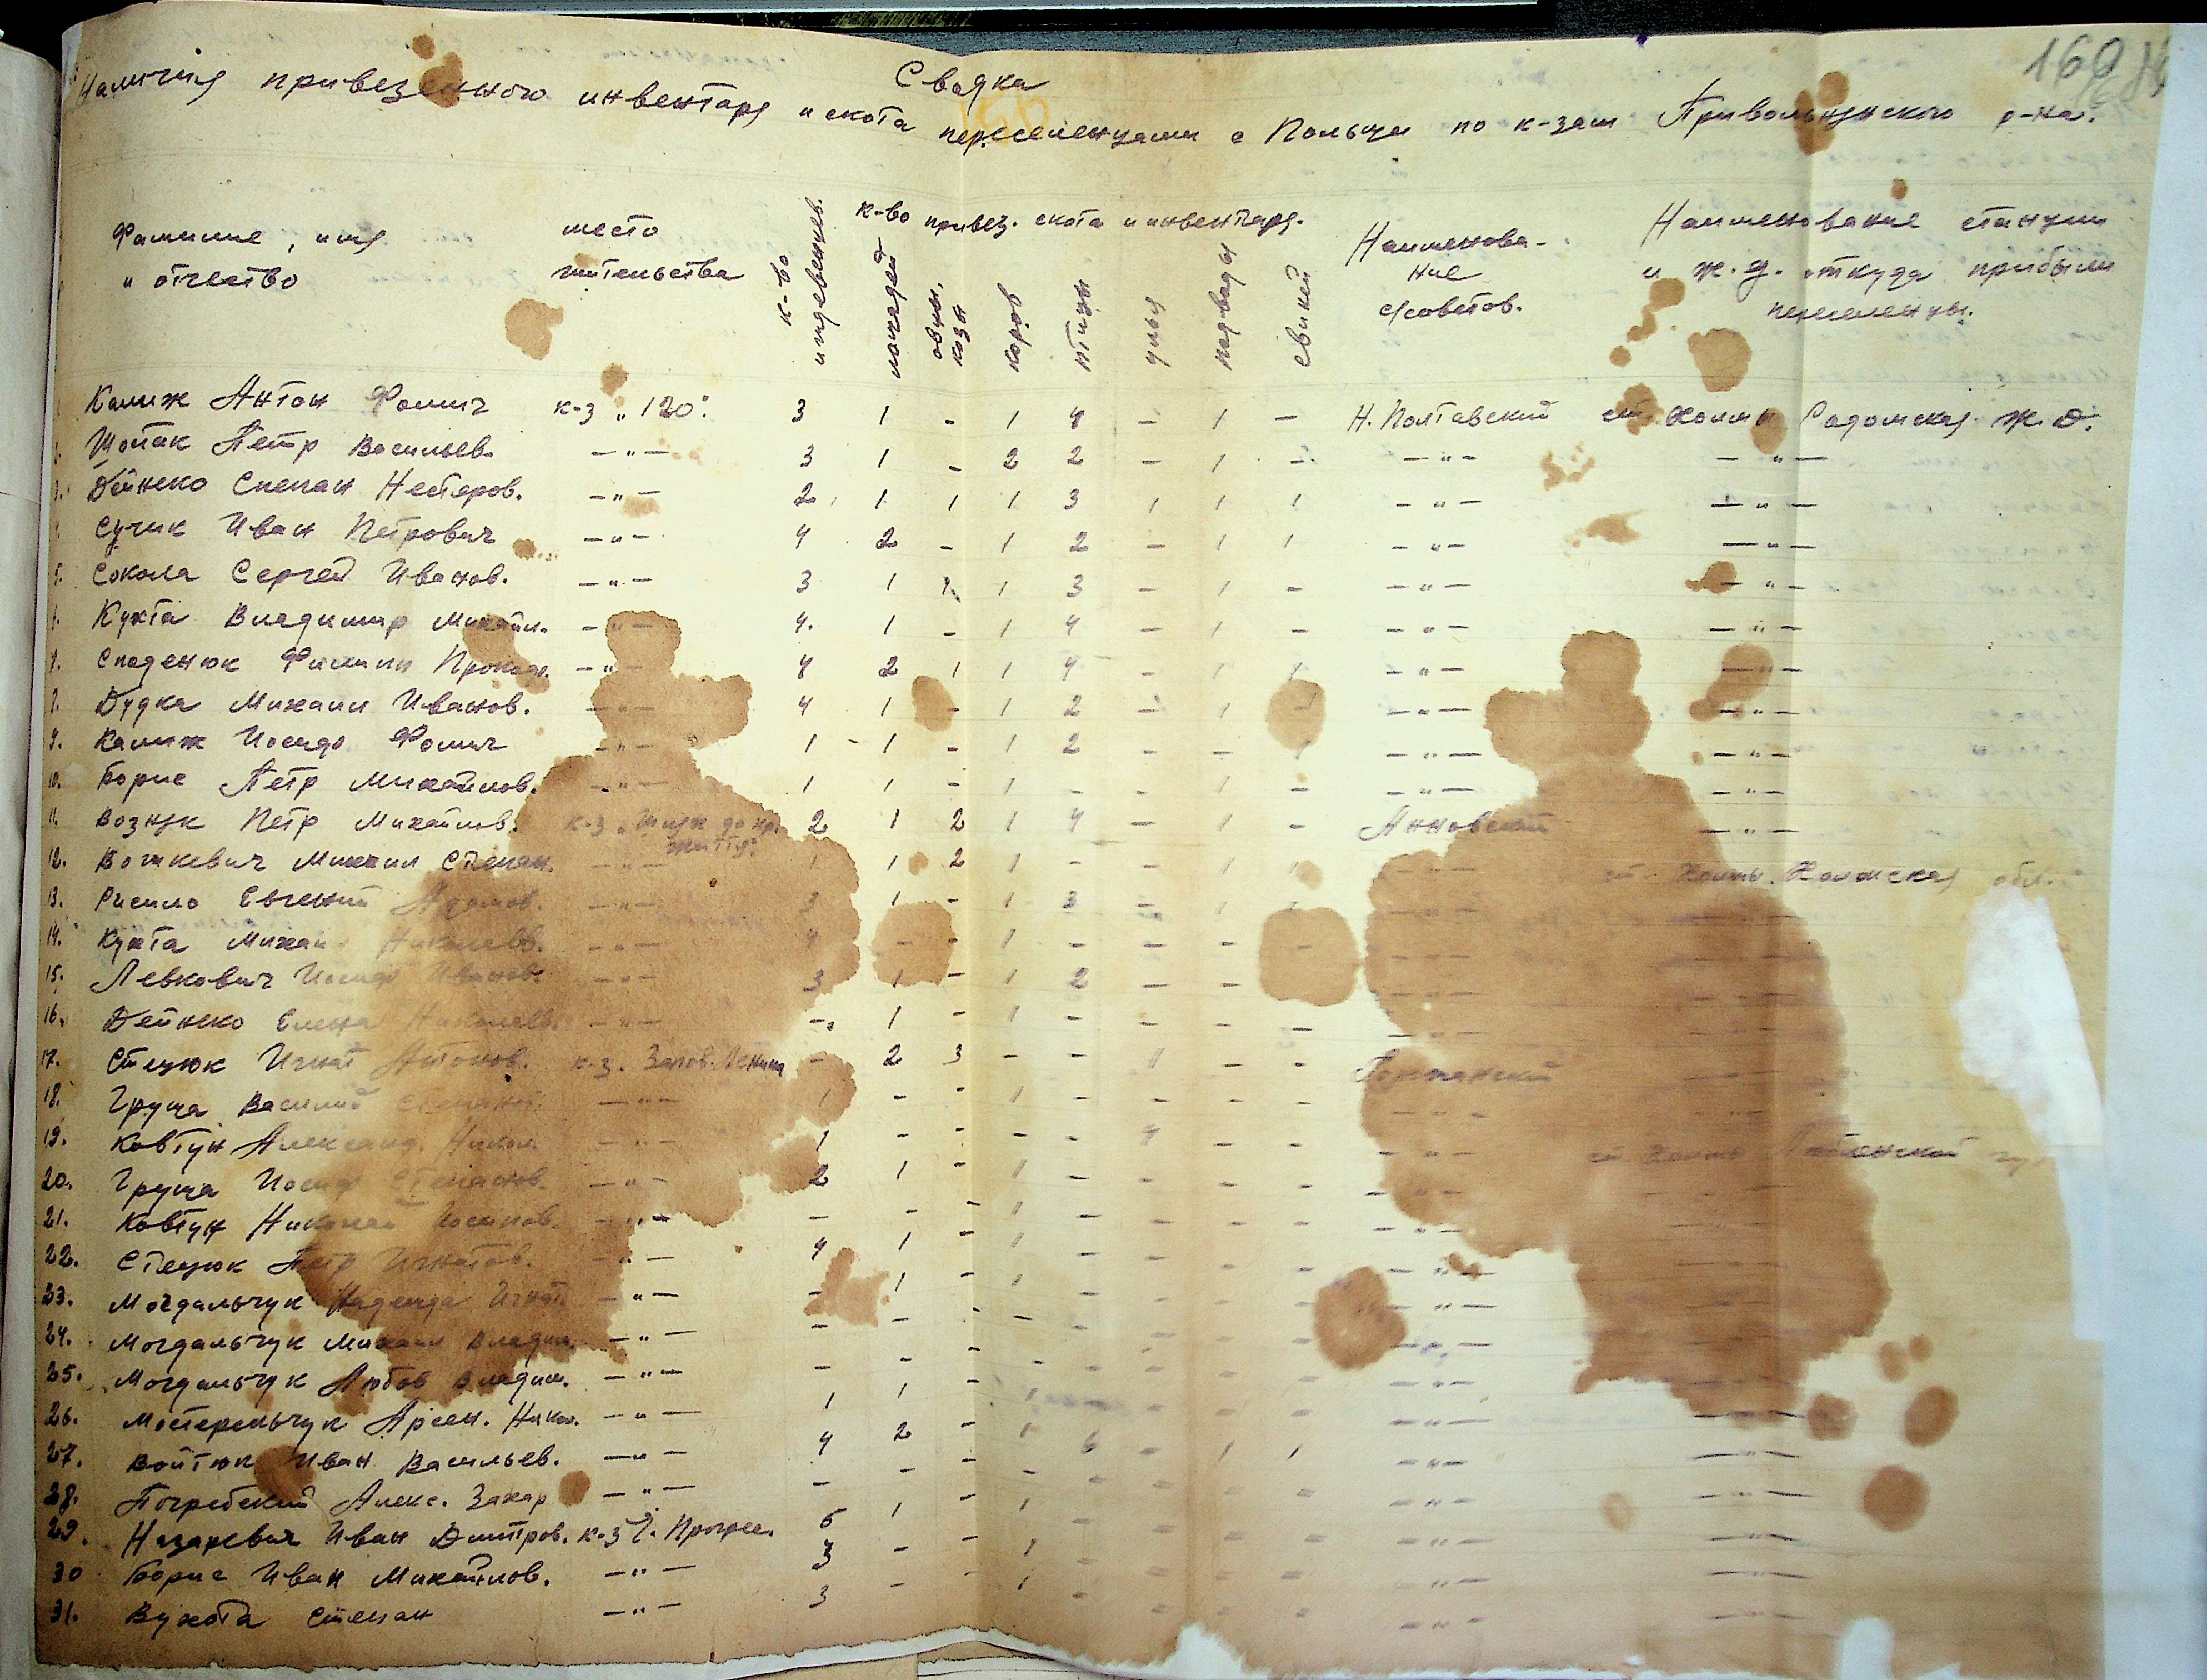 Сводка
Наличия привезенного инвентаря и скота переселенцами с Польщи по к-зам Привольнянского р-на.
Фамилие, имя и отчество
место жительства
к-во иждевенцев.
к-во привез. скота и инвентаря.
лошадей
овцы, козы
коров
птицы
улья
подводы
свиней
Наименова-ние с/советов.
Наименование станции и ж.д. откуда прибыли переселенцы.
Калиж Антон Фомич к-з "120" 3 1 - 1 4 - 1 - Н. Полтавский ст. Холм Радомская ж.д.
Шопак Петр Васильев. -"- 3 1 - 2 2 - 1 - -"- -"-
Дейнеко Степан Нестеров. -"- 2 1 1 1 3 1 1 1 -"- -"-
Сучик Иван Петрович -"- 4 2 - 1 2 - 1 1 -"- -"-
5. Сокола Сергей Иванов. -"- 3 1 1 1 3 - 1 - -"- -"-
6. Кухта Владимир Михайл. -"- 4 1 - 1 4 - 1 - -"- -"-
7. Споденюк Филипп Прокоф. -"- 4 2 1 1 4 - 1 1 -"- -"-
Дудка Михаил Иванов. -"- 4 1 - 1 2 - 1 -"- -"-
9. Калиж Иосиф Фомич -"- 1 - 1 - 1 2 - - 1 -"- -"-
10. Борис Петр Михайлов. -"- 1 1 - 1 - - 1 - -"- -"-
11. Вознюк Петр Михайлов. к-з "Шлях до кр. життя" 2 1 2 1 4 - 1 - Анновский -"-
12. Вошкевич Михаил Степан. -"- 1 1 2 1 - - 1 1 -"- ст. Холм. Холмская обл.
13. Евгений Адамов. -"- 3 1 - 1 3 - 1 1
14. Кухта Михаил Николаев. -"- 4 - - 1 - - - -
15. Левкович Иосиф Иванов. -"- 3 1 - 1 2 - - -
16. Дейнеко Елена Николаев. -"- - 1 - 1 - - - -
17. Стецюк Игнат Антонов. к-з. Запов. Ленина - 2 3 - - 1 - -
18. Груша Василий -"- 1 - - 1 - - - - -"-
19. Ковтун Александ. Никол. -"- 1 - - - - 4 - - -"- ст. Холм
20. Груша Иосиф Степанов. -"- 2 1 - 1 - - - - -"-
21. Ковтун Николай Иосипов. -"- - - - 1 - - - - -"-
22. Стецюк Петр Игнатов. -"- 4 1 - 1 - - - - -"-
23. Могдальчук Надежда Игнат. -"- - 1 - 1 - - - - -"-
24. Могдальчук Михаил Владим. -"- - - - - - - - - -"-
25. Могдальчук Любов Владим. -"- - - - - - - - - -"-
26. Арсен. Никол. -"- 1 1 - 1 - - - - -"-
27. Войтюк Иван Васильев. -"- 4 2 - 1 6 - 1 1 -"- -"-
28. Погребский Алекс. Захар -"- - - - - - - - - -"- -"-
29. Назаревич Иван Дмитров. к-з Прогрес. 6 1 - 1 - - - - -"- -"-
30 Борис Иван Михайлов. -"- 3 - - 1 - - - - -"- -"-
31. Вухота Степан -"- 3 - - 1 - - - - -"- -"-